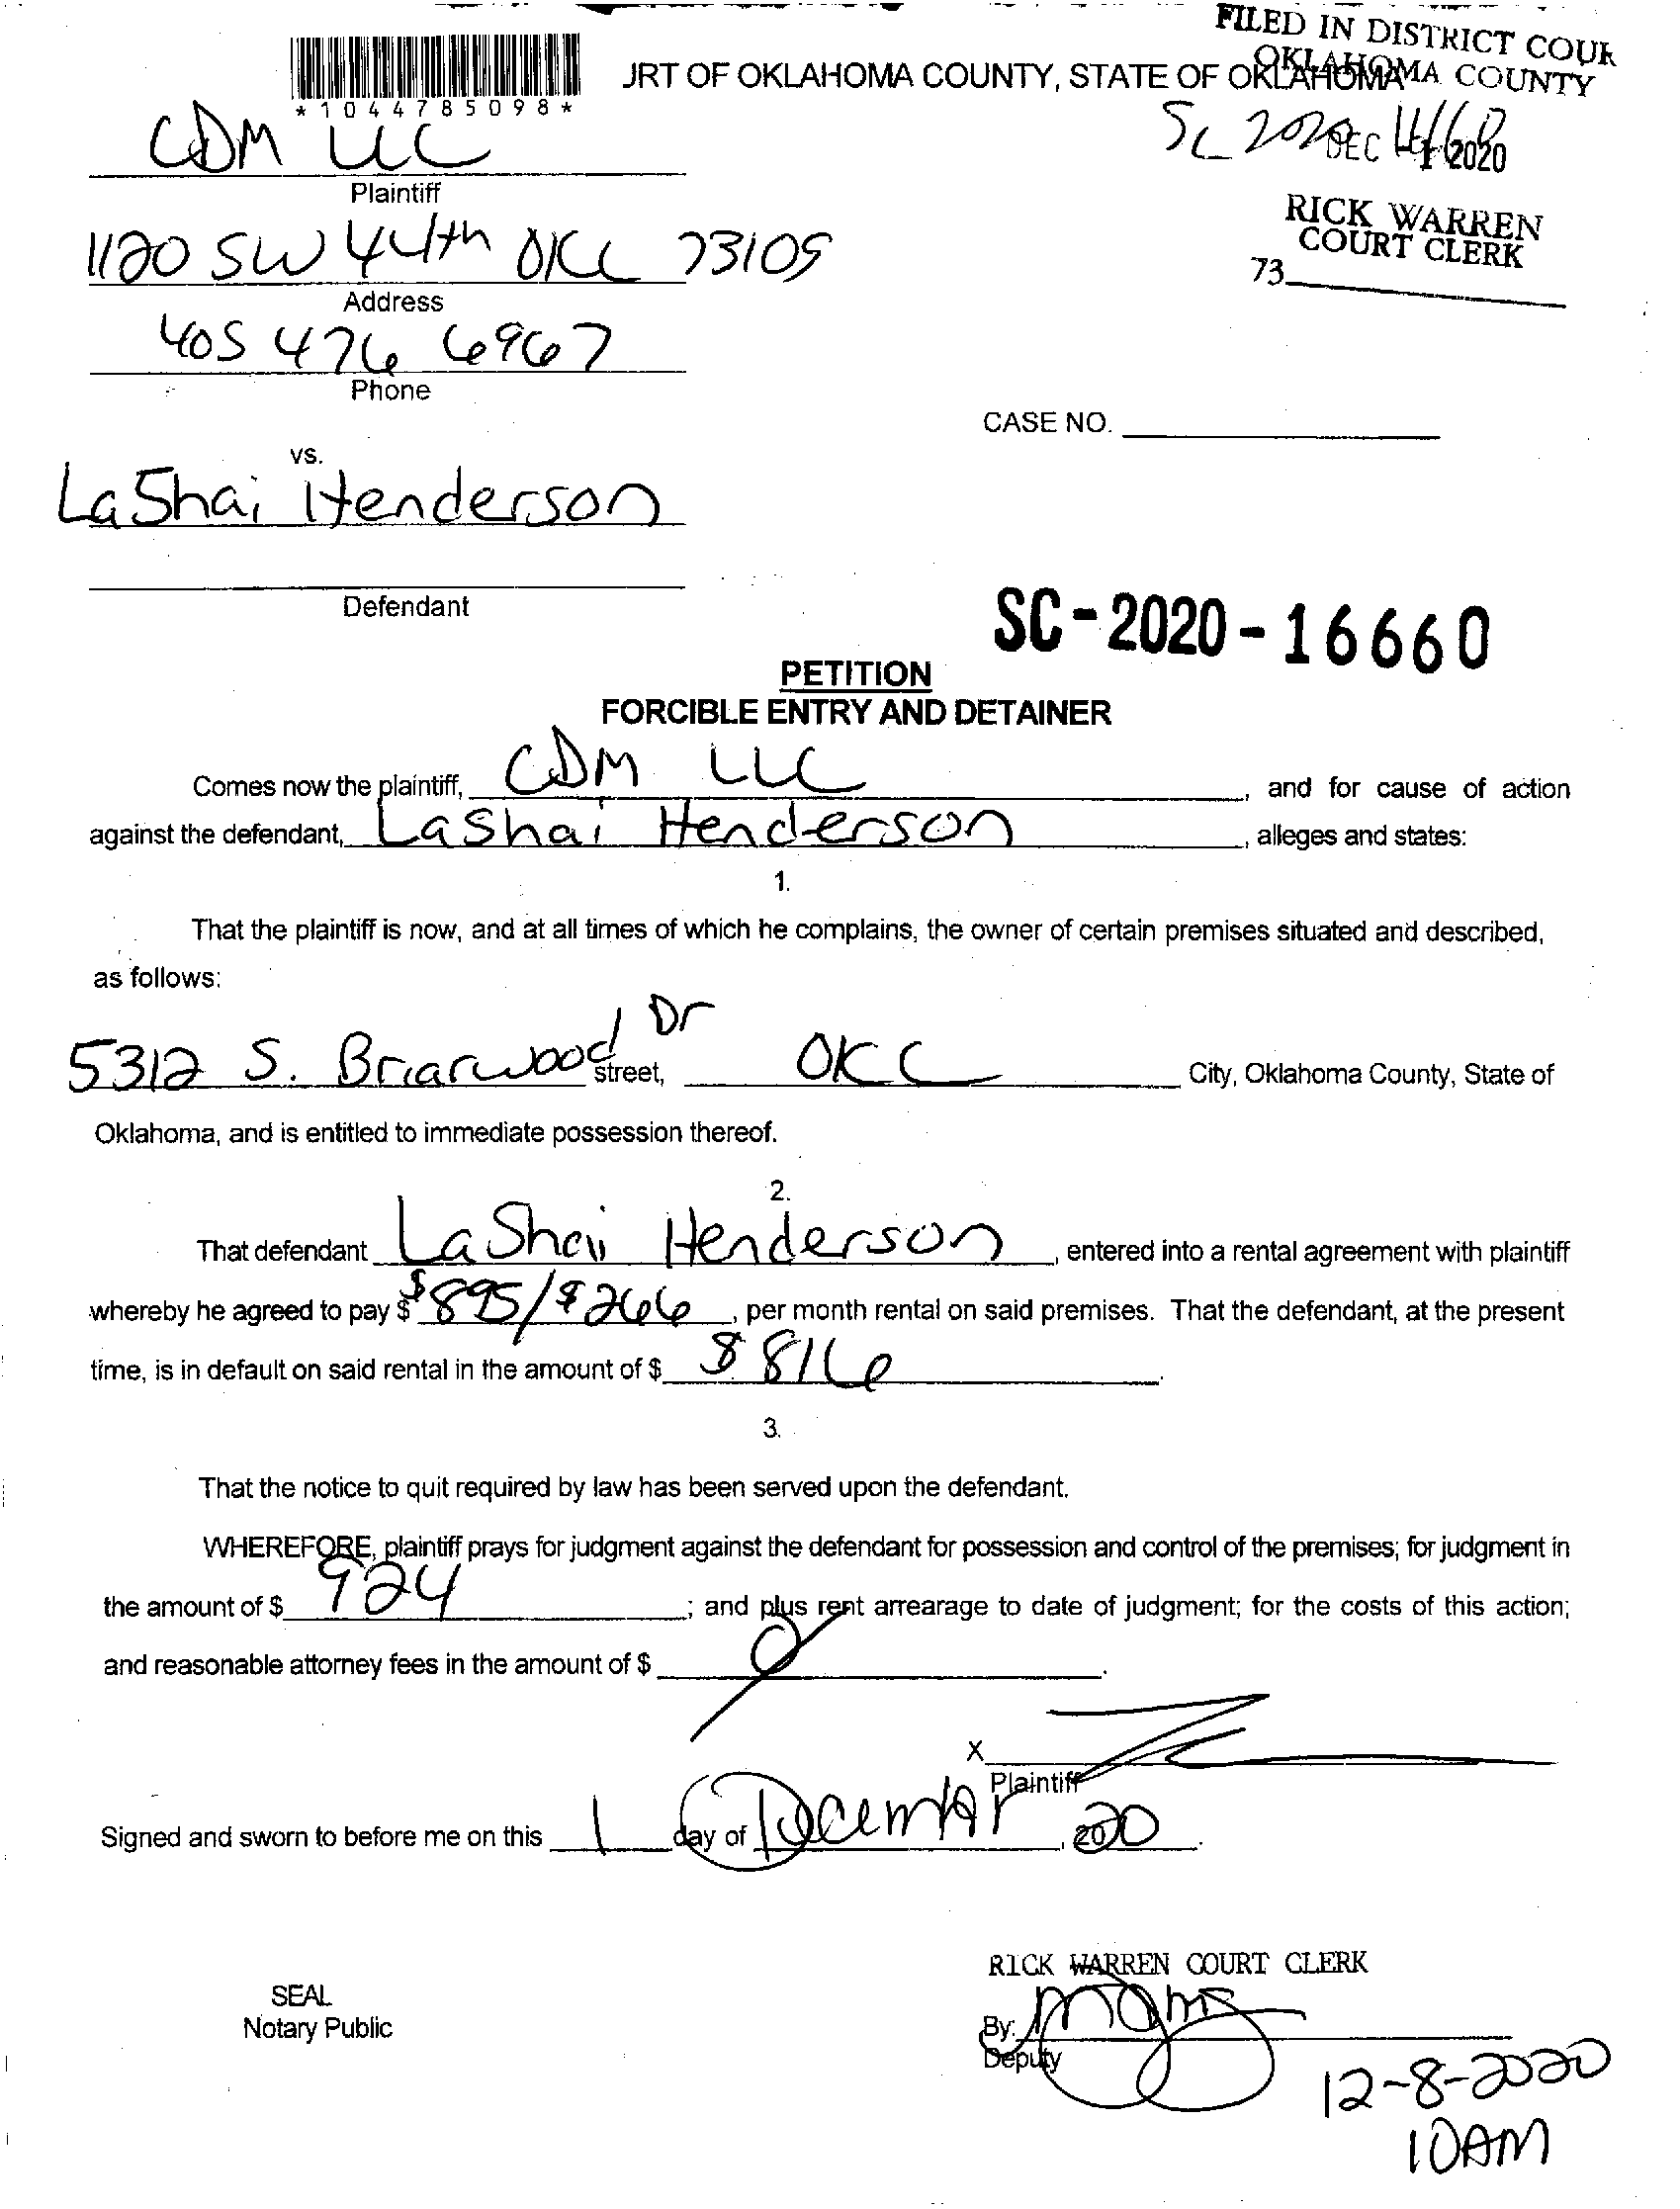 FILED IN DISTRICT COUR
OKLAHOMA COUNTY
JRT OF OKLAHOMA COUNTY, STATE OF OKLAHOMA
*1044785098*
SC 2020 16660
DEC - 1 2020
RICK WARREN
COURT CLERK
73
CDM LLC
Plaintiff
1120 SW 44th OKC 73109
Address
405 476 6967
Phone
CASE NO.
vs.
LaShai Henderson
Defendant
SC-2020-16660
PETITION
FORCIBLE ENTRY AND DETAINER
Comes now the plaintiff, CDM LLC, and for cause of action
against the defendant, LaShai Henderson, alleges and states:
1.
That the plaintiff is now, and at all times of which he complains, the owner of certain premises situated and described,
as follows:
5312 S. Briarwood Dr street, OKC City, Oklahoma County, State of
Oklahoma, and is entitled to immediate possession thereof.
2.
That defendant LaShai Henderson, entered into a rental agreement with plaintiff
whereby he agreed to pay $ $895/$266, per month rental on said premises. That the defendant, at the present
time, is in default on said rental in the amount of $ $816.
3.
That the notice to quit required by law has been served upon the defendant.
WHEREFORE, plaintiff prays for judgment against the defendant for possession and control of the premises; for judgment in
the amount of $ 924; and plus rent arrearage to date of judgment; for the costs of this action;
and reasonable attorney fees in the amount of $ 0.
X
Plaintiff
Signed and sworn to before me on this 1 day of December, 2020.
SEAL
Notary Public
RICK WARREN COURT CLERK
By:
Deputy
12-8-2020
10AM